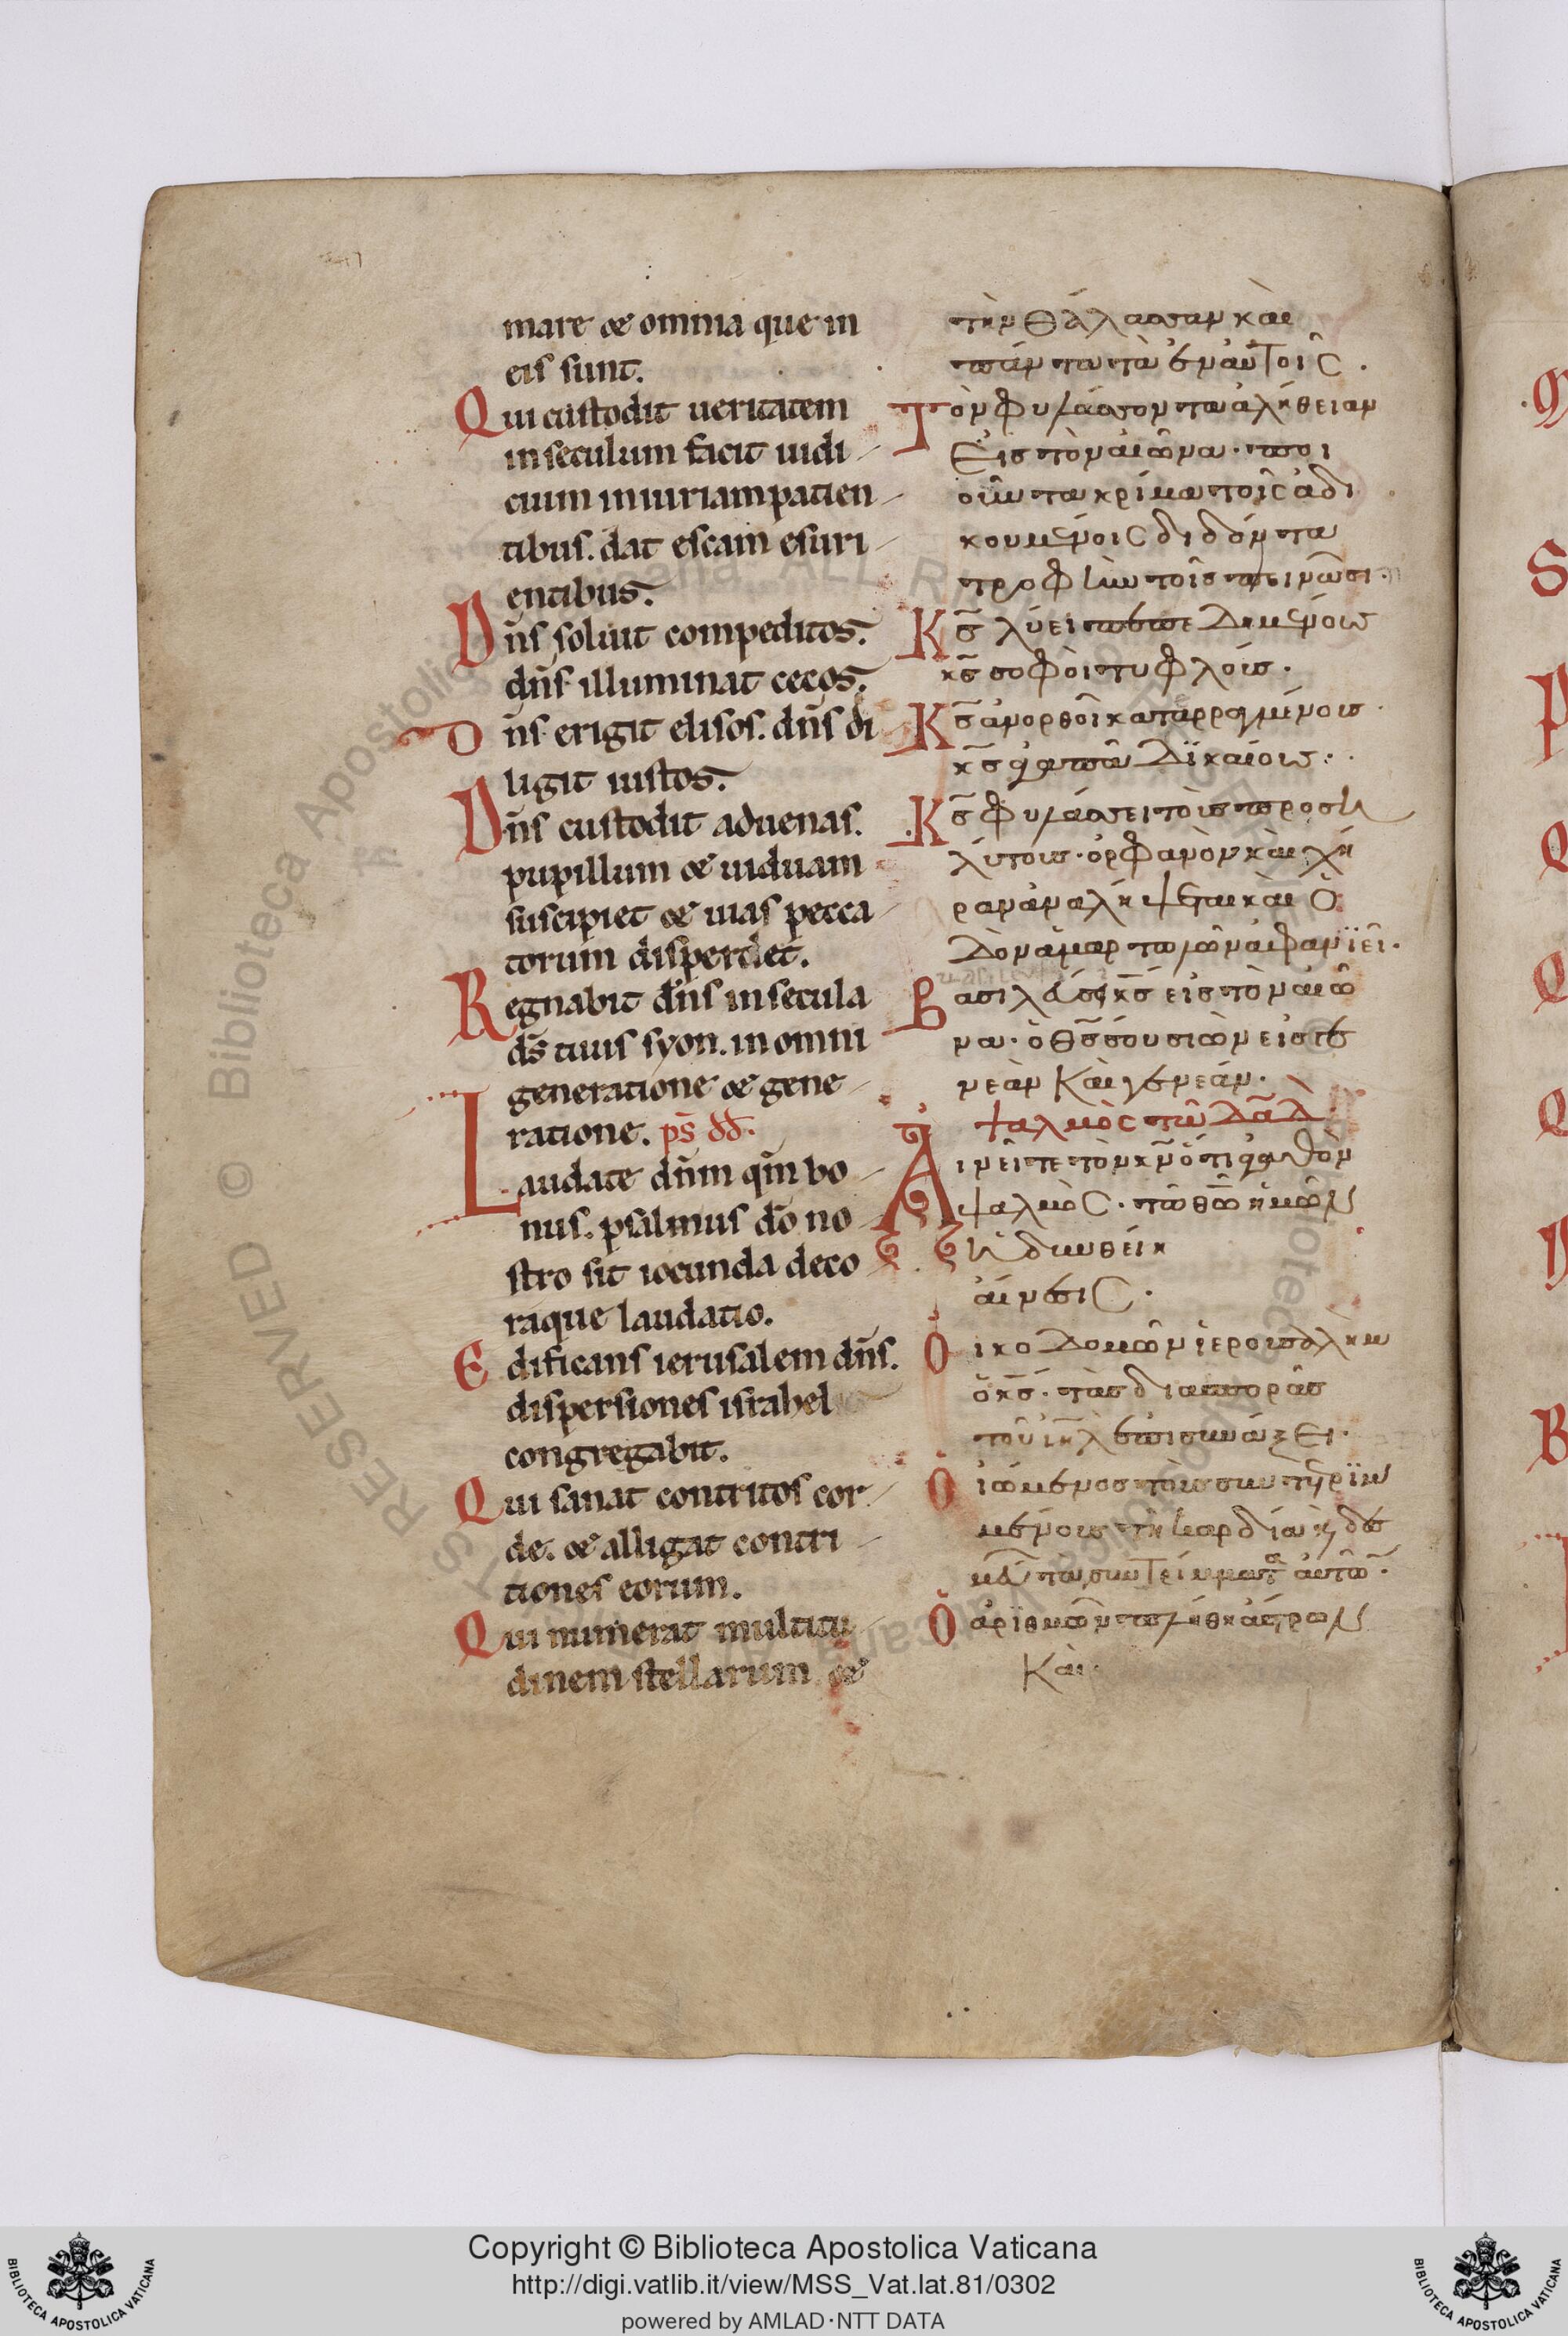 mare & omnia que in
eis sunt.
Qui custodit ueritatem
in seculum facit iudi
cium iniuriam patien
tibus. dat escam esuri
entibus.
Dn̄s soluit compeditos.
dn̄s illuminat cecos.
Dn̄s erigit elisos. dn̄s di
ligit iustos.
Dn̄s custodit aduenas.
pupillum & uiduam
suscipiet & uias pecca
torum disperdet.
Regnabit dn̄s in secula
ds̄ tuus syon. in omni
generatione & gene
ratione. ps̄ dd.
Laudate dn̄m qm̄ bo
nus. psalmus dō no
stro sit iocunda deco
raque laudatio.
Edificans ierusalem dn̄s.
dispersiones israhel
congregabit.
Qui sanat contritos cor
de. & alligat contri
tiones eorum.
Qui numerat multitu
dinem stellarum &
τὴν θάλασσαν κὰι
πάντα τὰ ἐν ἀυτοῖς.
Τὸν φυλάσσοντα ἀλήθειαν
Εἰς τὸν αἰῶνα· ποι
οῦντα κρίμα τοῖς ἀδι
κουμένοις διδόντα
τροφὴν τοῖς πεινῶσι.
Κς̄ λύει πεπεδημένους
κς̄ σοφὸι τυφλόυς.
Κς̄ ἀνορθοῖ καταρραγμένους
κς̄ ἀγαπᾶ Δϊκαίους.
Κς̄ φυλάσσει τὸυς προση
λύτους· ὀρφανὸν κὰι χή
ραν ἀναλήψεται κὰι Ὁ
Δὸν ἁμαρτωλῶν ἀφανϊεῖ.
Βασιλεύσει κς̄ εἰς τὸν αἰῶ
να· ὁ θς̄ σου σιὼν εἰς γε
νεὰν Κὰι γενεάν.
ψαλμὸς τῶ Δᾱδ
Ἀινεῖτε τὸν κν̄ ὅτι ἀγαθὸν
ψαλμὸς. τῶ θῶ ἡμῶν
ἡδυνθείη
ἀίνεσις.
Ὀικοδομῶν ἱερουσαλὴμ
ὁ κς̄. τὰς διασπορὰς
τοῦ ιη̄λ ἐπισυνάξει.
Ὁ ἰώμενος τοὺς συντετριμ
μένους τὴν καρδίαν κ̀ δεσ
μεύων τὰ συντρίμματα ἀυτῶ̄.
Ὁ ἀριθμῶν πλήθη ἄστρων
Κὰι
Copyright © Biblioteca Apostolica Vaticana
http://digi.vatlib.it/view/MSS_Vat.lat.81/0302
powered by AMLAD·NTT DATA